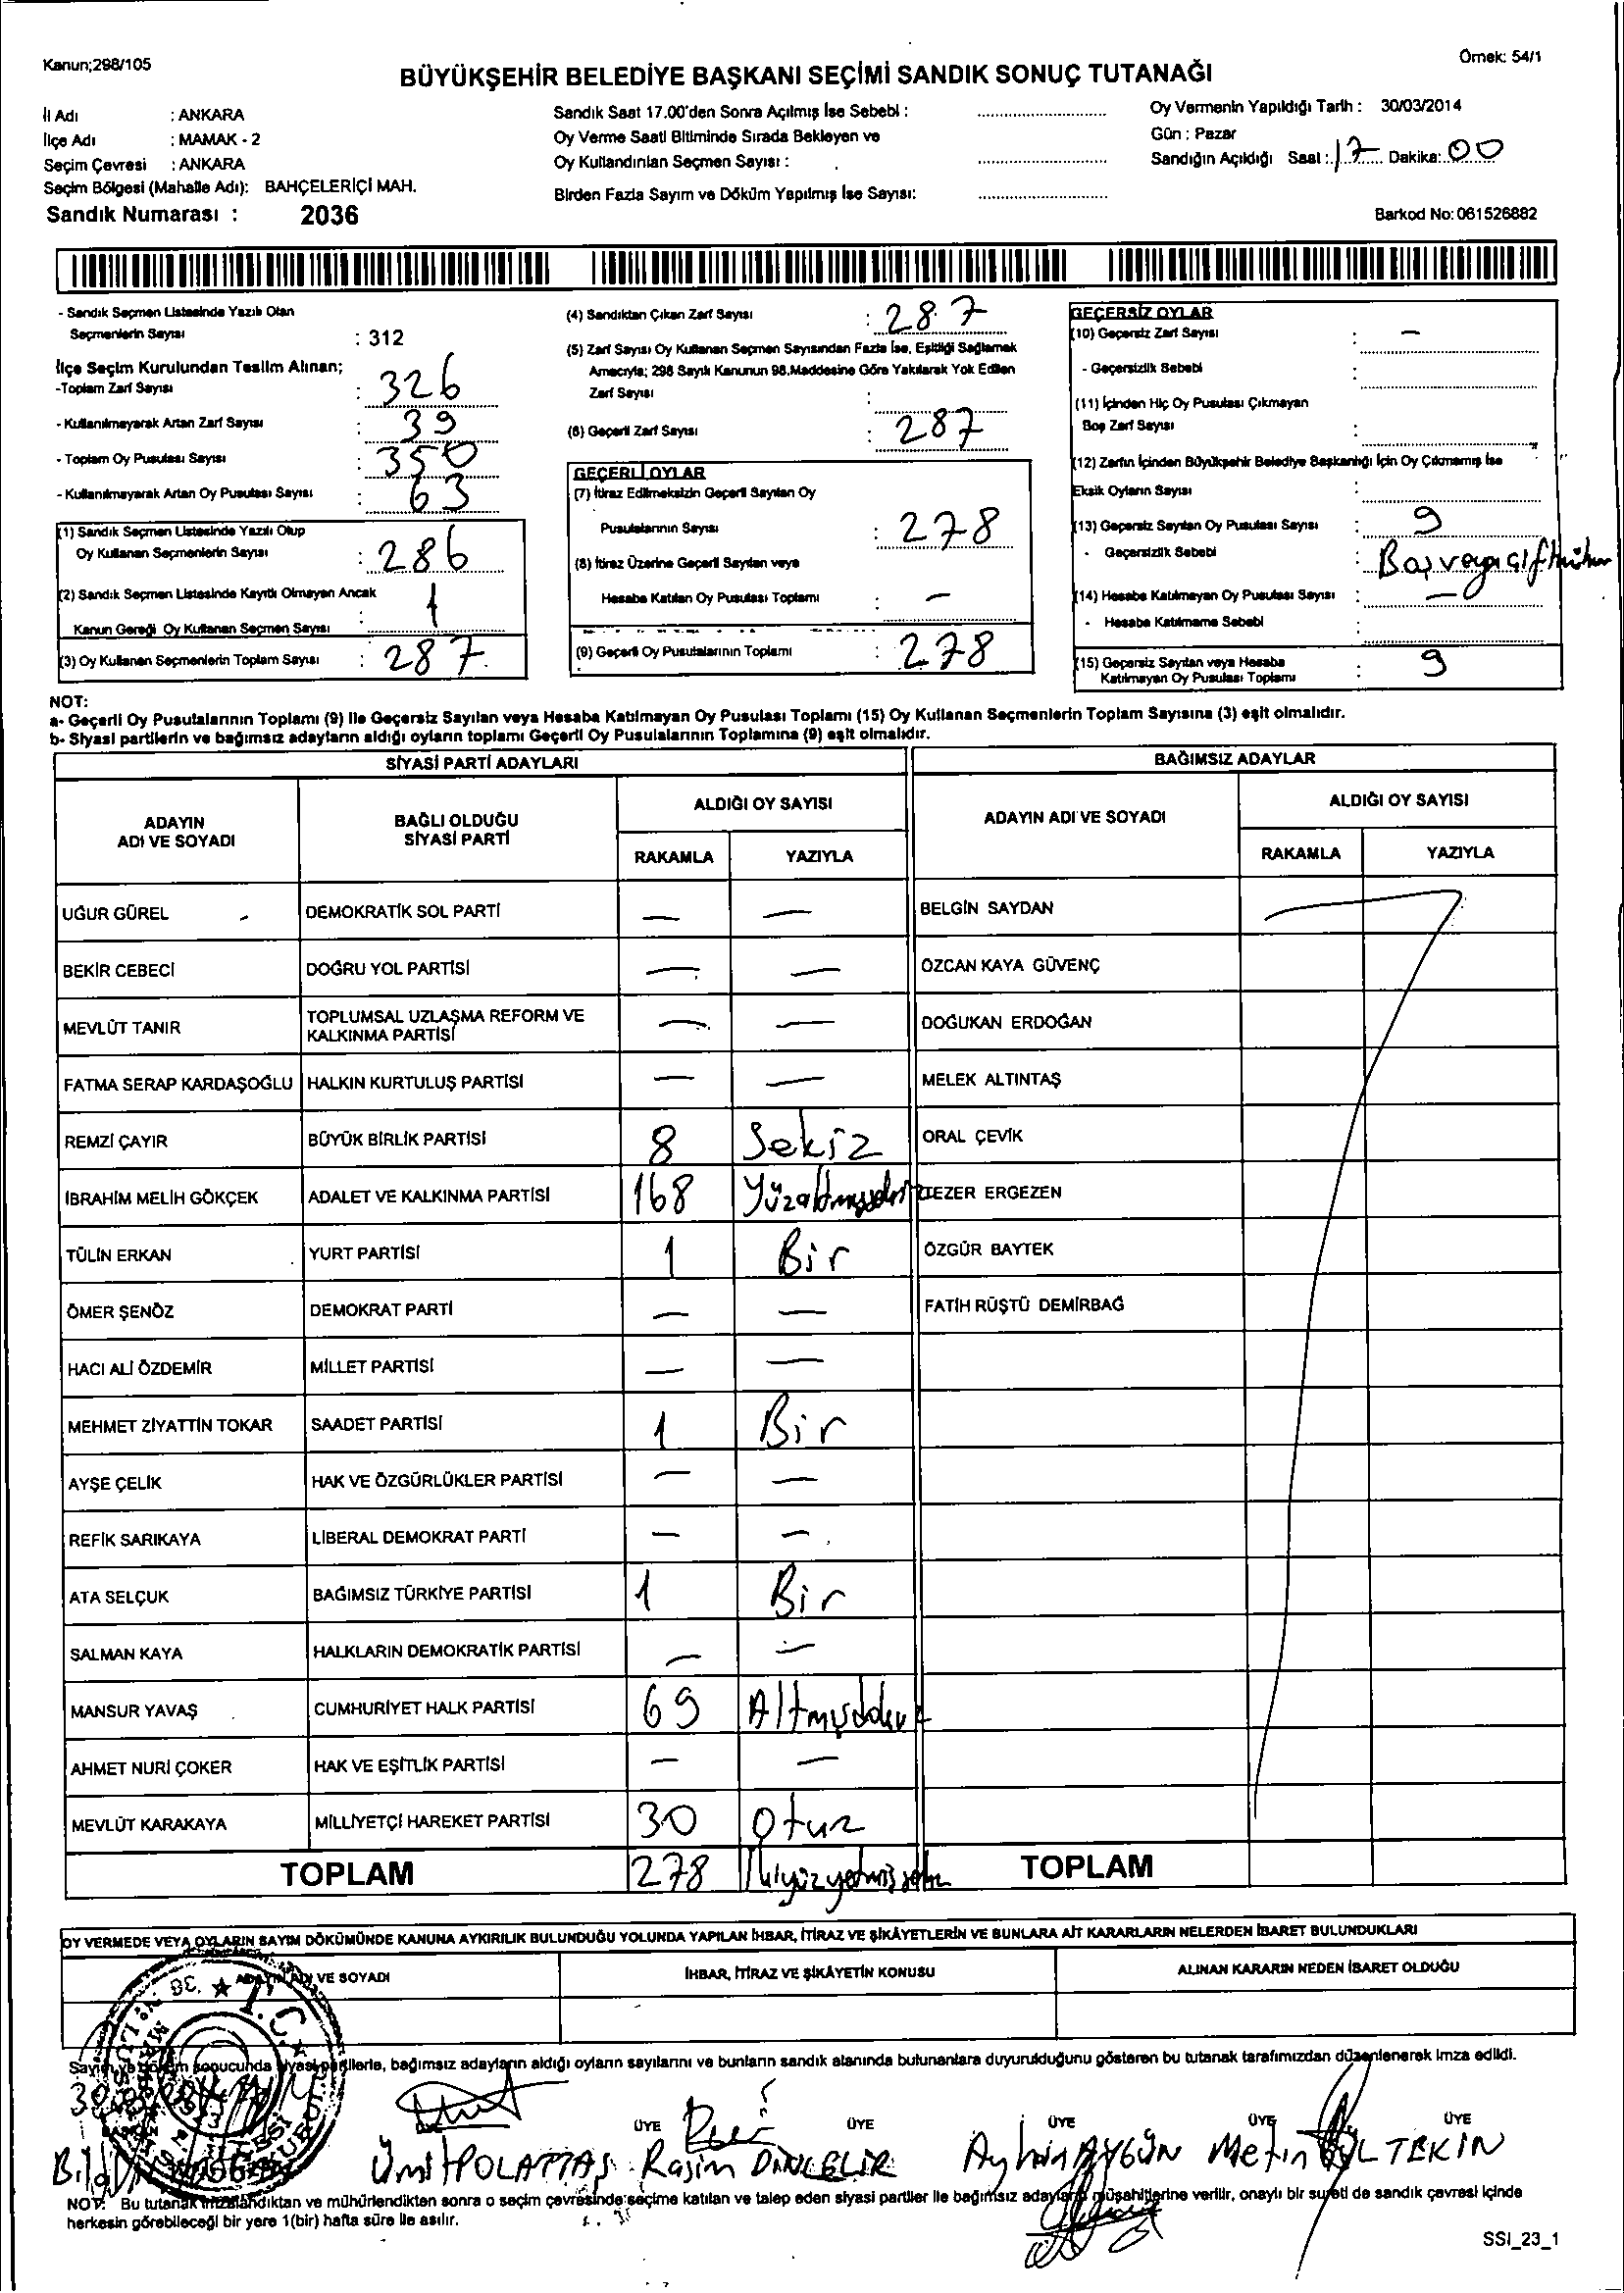 Kanun;298/105
Örnek: 54/1
BÜYÜKŞEHİR BELEDİYE BAŞKANI SEÇİMİ SANDIK SONUÇ TUTANAĞI
İl Adı : ANKARA
İlçe Adı : MAMAK - 2
Seçim Çevresi : ANKARA
Seçim Bölgesi (Mahalle Adı): BAHÇELERİÇİ MAH.
Sandık Numarası : 2036
Sandık Saat 17.00'den Sonra Açılmış İse Sebebi :
Oy Verme Saati Bitiminde Sırada Bekleyen ve
Oy Kullandırılan Seçmen Sayısı :
Birden Fazla Sayım ve Döküm Yapılmış İse Sayısı:
Oy Vermenin Yapıldığı Tarih : 30/03/2014
Gün : Pazar
Sandığın Açıldığı Saat : 17 Dakika: 00
Barkod No: 061526882
- Sandık Seçmen Listesinde Yazılı Olan
Seçmenlerin Sayısı : 312
İlçe Seçim Kurulundan Teslim Alınan;
-Toplam Zarf Sayısı : 326
- Kullanılmayarak Artan Zarf Sayısı : 39
- Toplam Oy Pusulası Sayısı : 350
- Kullanılmayarak Artan Oy Pusulası Sayısı : 63
(1) Sandık Seçmen Listesinde Yazılı Olup
Oy Kullanan Seçmenlerin Sayısı : 286
(2) Sandık Seçmen Listesinde Kayıtlı Olmayan Ancak
Kanun Gereği Oy Kullanan Seçmen Sayısı : 1
(3) Oy Kullanan Seçmenlerin Toplam Sayısı : 287
(4) Sandıktan Çıkan Zarf Sayısı : 287
(5) Zarf Sayısı Oy Kullanan Seçmen Sayısından Fazla İse, Eşitliği Sağlamak
Amacıyla; 298 Sayılı Kanunun 98.Maddesine Göre Yakılarak Yok Edilen
Zarf Sayısı :
(6) Geçerli Zarf Sayısı : 287
GEÇERLİ OYLAR
(7) İtiraz Edilmeksizin Geçerli Sayılan Oy
Pusulalarının Sayısı : 278
(8) İtiraz Üzerine Geçerli Sayılan veya
Hesaba Katılan Oy Pusulası Toplamı : —
(9) Geçerli Oy Pusulalarının Toplamı : 278
GEÇERSİZ OYLAR
(10) Geçersiz Zarf Sayısı : —
- Geçersizlik Sebebi :
(11) İçinden Hiç Oy Pusulası Çıkmayan
Boş Zarf Sayısı :
(12) Zarfın İçinden Büyükşehir Belediye Başkanlığı İçin Oy Çıkmamış İse
Eksik Oyların Sayısı :
(13) Geçersiz Sayılan Oy Pusulası Sayısı : 9
- Geçersizlik Sebebi : Boş veya çift
(14) Hesaba Katılmayan Oy Pusulası Sayısı : —
- Hesaba Katılmama Sebebi :
(15) Geçersiz Sayılan veya Hesaba
Katılmayan Oy Pusulası Toplamı : 9
NOT:
a- Geçerli Oy Pusulalarının Toplamı (9) ile Geçersiz Sayılan veya Hesaba Katılmayan Oy Pusulası Toplamı (15) Oy Kullanan Seçmenlerin Toplam Sayısına (3) eşit olmalıdır.
b- Siyasi partilerin ve bağımsız adayların aldığı oyların toplamı Geçerli Oy Pusulalarının Toplamına (9) eşit olmalıdır.
SİYASİ PARTİ ADAYLARI
ADAYIN ADI VE SOYADI BAĞLI OLDUĞU SİYASİ PARTİ ALDIĞI OY SAYISI RAKAMLA YAZIYLA
UĞUR GÜREL DEMOKRATİK SOL PARTİ — —
BEKİR CEBECİ DOĞRU YOL PARTİSİ — —
MEVLÜT TANIR TOPLUMSAL UZLAŞMA REFORM VE KALKINMA PARTİSİ — —
FATMA SERAP KARDAŞOĞLU HALKIN KURTULUŞ PARTİSİ — —
REMZİ ÇAYIR BÜYÜK BİRLİK PARTİSİ 8 Sekiz
İBRAHİM MELİH GÖKÇEK ADALET VE KALKINMA PARTİSİ 168 Yüzaltmışsekiz
TÜLİN ERKAN YURT PARTİSİ 1 Bir
ÖMER ŞENÖZ DEMOKRAT PARTİ — —
HACI ALİ ÖZDEMİR MİLLET PARTİSİ — —
MEHMET ZİYATTİN TOKAR SAADET PARTİSİ 1 Bir
AYŞE ÇELİK HAK VE ÖZGÜRLÜKLER PARTİSİ — —
REFİK SARIKAYA LİBERAL DEMOKRAT PARTİ — —
ATA SELÇUK BAĞIMSIZ TÜRKİYE PARTİSİ 1 Bir
SALMAN KAYA HALKLARIN DEMOKRATİK PARTİSİ — —
MANSUR YAVAŞ CUMHURİYET HALK PARTİSİ 69 Altmışdokuz
AHMET NURİ ÇOKER HAK VE EŞİTLİK PARTİSİ — —
MEVLÜT KARAKAYA MİLLİYETÇİ HAREKET PARTİSİ 30 Otuz
TOPLAM 278 İkiyüzyetmişsekiz
BAĞIMSIZ ADAYLAR
ADAYIN ADI VE SOYADI ALDIĞI OY SAYISI RAKAMLA YAZIYLA
BELGİN SAYDAN
ÖZCAN KAYA GÜVENÇ
DOĞUKAN ERDOĞAN
MELEK ALTINTAŞ
ORAL ÇEVİK
TEZER ERGEZEN
ÖZGÜR BAYTEK
FATİH RÜŞTÜ DEMİRBAĞ
TOPLAM
OY VERMEDE VEYA OYLARIN SAYIM DÖKÜMÜNDE KANUNA AYKIRILIK BULUNDUĞU YOLUNDA YAPILAN İHBAR, İTİRAZ VE ŞİKÂYETLERİN VE BUNLARA AİT KARARLARIN NELERDEN İBARET BULUNDUKLARI
ADAYIN ADI VE SOYADI İHBAR, İTİRAZ VE ŞİKÂYETİN KONUSU ALINAN KARARIN NEDEN İBARET OLDUĞU
T.C.
Sayım ve döküm sonucunda siyasi partilerle, bağımsız adayların aldığı oyların sayılarını ve bunların sandık alanında bulunanlara duyurulduğunu gösteren bu tutanak tarafımızdan düzenlenerek imza edildi.
BAŞKAN ÜYE ÜYE ÜYE ÜYE ÜYE
Ümit POLATTAŞ Rasim DİNÇELİR Ayhin AYGÜN Metin GÜLTEKİN
NOT: Bu tutanak imzalandıktan ve mühürlendikten sonra o seçim çevresinde seçime katılan ve talep eden siyasi partiler ile bağımsız adayların müşahitlerine verilir, onaylı bir sureti de sandık çevresi içinde
herkesin görebileceği bir yere 1(bir) hafta süre ile asılır.
SSI_23_1